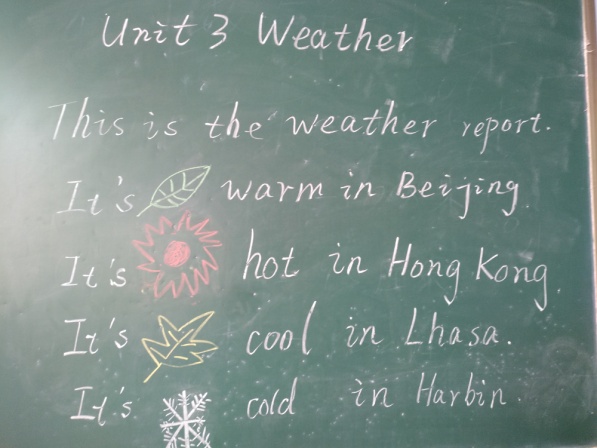 Unit 3 Weather
This is the weather report.
It's warm in Beijing
It's hot in Hong Kong.
It's cool in Lhasa.
It's cold in Harbin.